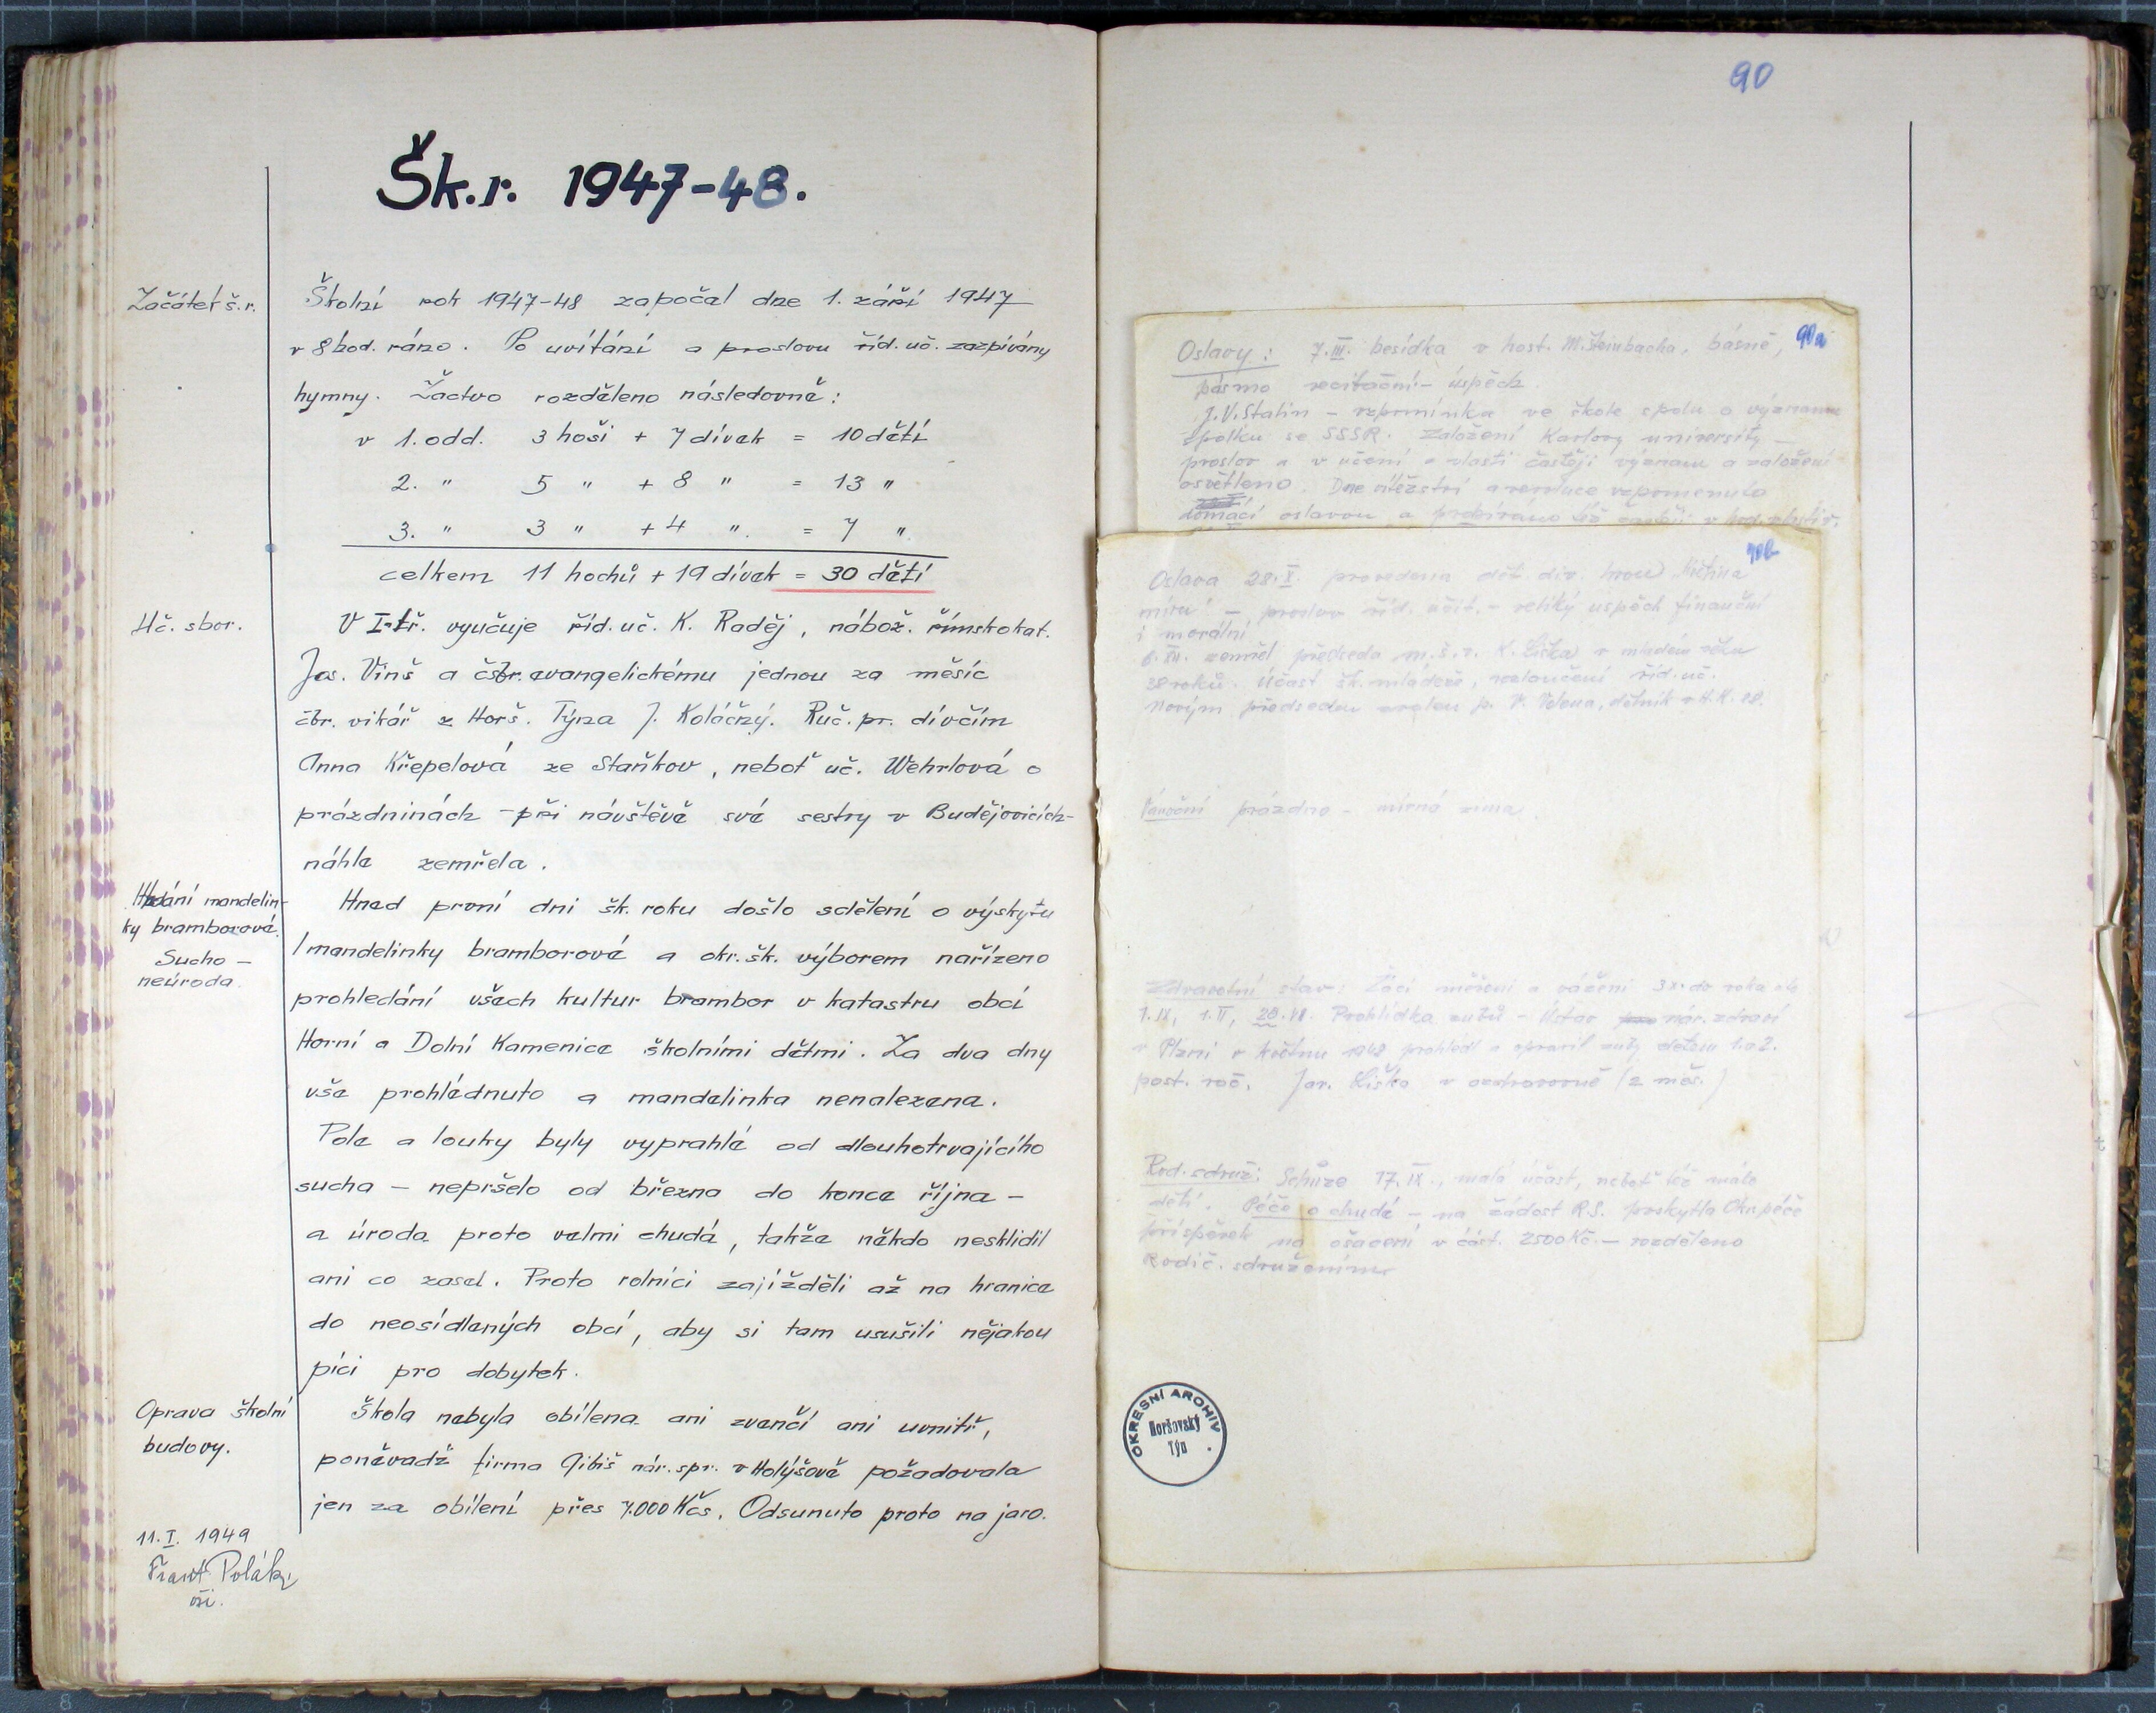 Šk. r. 1947-48.
Začátek š. r.
Školní rok 1947-48 započal dne 1. září 1947
v 8 hod. ráno. Po uvítání a proslovu říd. uč. zazpívány
hymny. Žactvo rozděleno následovně:
v 1. odd. 3 hoši + 7 dívek = 10 dětí
2. " 5 " + 8 " = 13 "
3. " 3 " + 4 " = 7 "
celkem 11 hochů + 19 dívek = 30 dětí
Uč. sbor.
V I. tř. vyučuje říd. uč. K. Raděj, nábož. římskokat.
Jos. Vinš a čsbr. evangelickému jednou za měsíc
čbr. vikář z Horš. Týna J. Koláčný. Ruč. pr. dívčím
Anna Křepelová ze Staňkov, neboť uč. Wehrlová o
prázdninách - při návštěvě své sestry v Budějovicích-
náhle zemřela.
Hledání mandelin-
ky bramborové.
Sucho -
neúroda.
Hned první dni šk. roku došlo sdělení o výskytu
mandelinky bramborové a okr. šk. výborem nařízeno
prohledání všech kultur brambor v katastru obcí
Horní a Dolní Kamenice školními dětmi. Za dva dny
vše prohlédnuto a mandelinka nenalezena.
Pole a louky byly vyprahlé od dlouhotrvajícího
sucha - nepršelo od března do konce října -
a úroda proto velmi chudá, takže někdo nesklidil
ani co zasel. Proto rolníci zajížděli až na hranice
do neosídlených obcí, aby si tam usušili nějakou
píci pro dobytek.
Oprava školní
budovy.
Škola nebyla obílena ani zvenčí ani uvnitř,
poněvadž firma Gibiš nár. spr. v Holýšově požadovala
jen za obílení přes 7.000 Kčs. Odsunuto proto na jaro.
11. I. 1949
Frant. Polák
90
90a
Oslavy: 7. III. besídka v host. M. Steinbacha, básně,
pásmo recitační - úspěch.
J. V. Stalin - vzpomínka ve škole spolu o významu
spolku se SSSR. Založení Karlovy university -
proslov a v učení o vlasti častěji význam a založení
osvětleno. Dne vítězství a revoluce vzpomenuto
domácí oslavou a probíráno též častěji v hod.
90b
Oslava 28. X. provedena dět. div. hrou
míru - proslov říd. učit. - veliký úspěch finanční
i morální
6. XII. zemřel předseda m. š. r. K. Liška v mladém věku
38 roků. Účast šk. mládeže, rozloučení říd. uč.
Novým předsedou zvolen p. V. dělník v H. K. 28.
Vánoční prázdno - mírná zima
Zdravotní stav: Žáci měřeni a váženi 3x do roka
1. IX, 1. II, 20. VI. Prohlídka zubů - Ústav nár. zdraví
v Plzni v květnu 1948 prohlédl a opravil zuby dětem 1. a 2.
post. roč. Jar. Liška v ozdravovně (2 měs.)
Rod. sdruž: Schůze 17. IX., malá účast, neboť též málo
dětí. Péče o chudé - na žádost R. S. poskytla Okr. péče
příspěvek na ošacení v část. 2500 Kč - rozděleno
Rodič. sdružením
OKRESNÍ ARCHIV
Horšovský
Týn